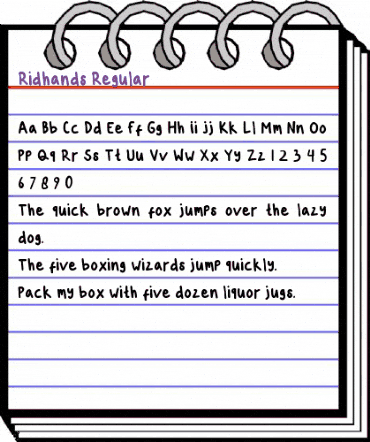 Ridhands Regular
Aa Bb Cc Dd Ee Ff Gg Hh ii jj Kk Ll Mm Nn Oo
Pp Qq Rr Ss Tt Uu Vv Ww Xx Yy Zz 1 2 3 4 5
6 7 8 9 0
The quick brown fox jumps over the lazy
dog.
The five boxing wizards jump quickly.
Pack my box with five dozen liquor jugs.